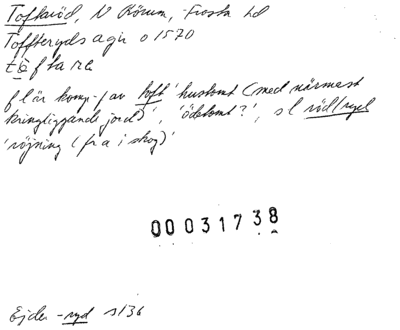 Toftaröd, N Rörum, Frosta hd
Toffteryds agir o 1570
tåftare
f l är komp. av toft 'hustomt (med närmast
kringliggande jord)', 'ödetomt?', s l röd/ryd
'röjning (fr a i skog)'
00031738
Ejder -ryd s136